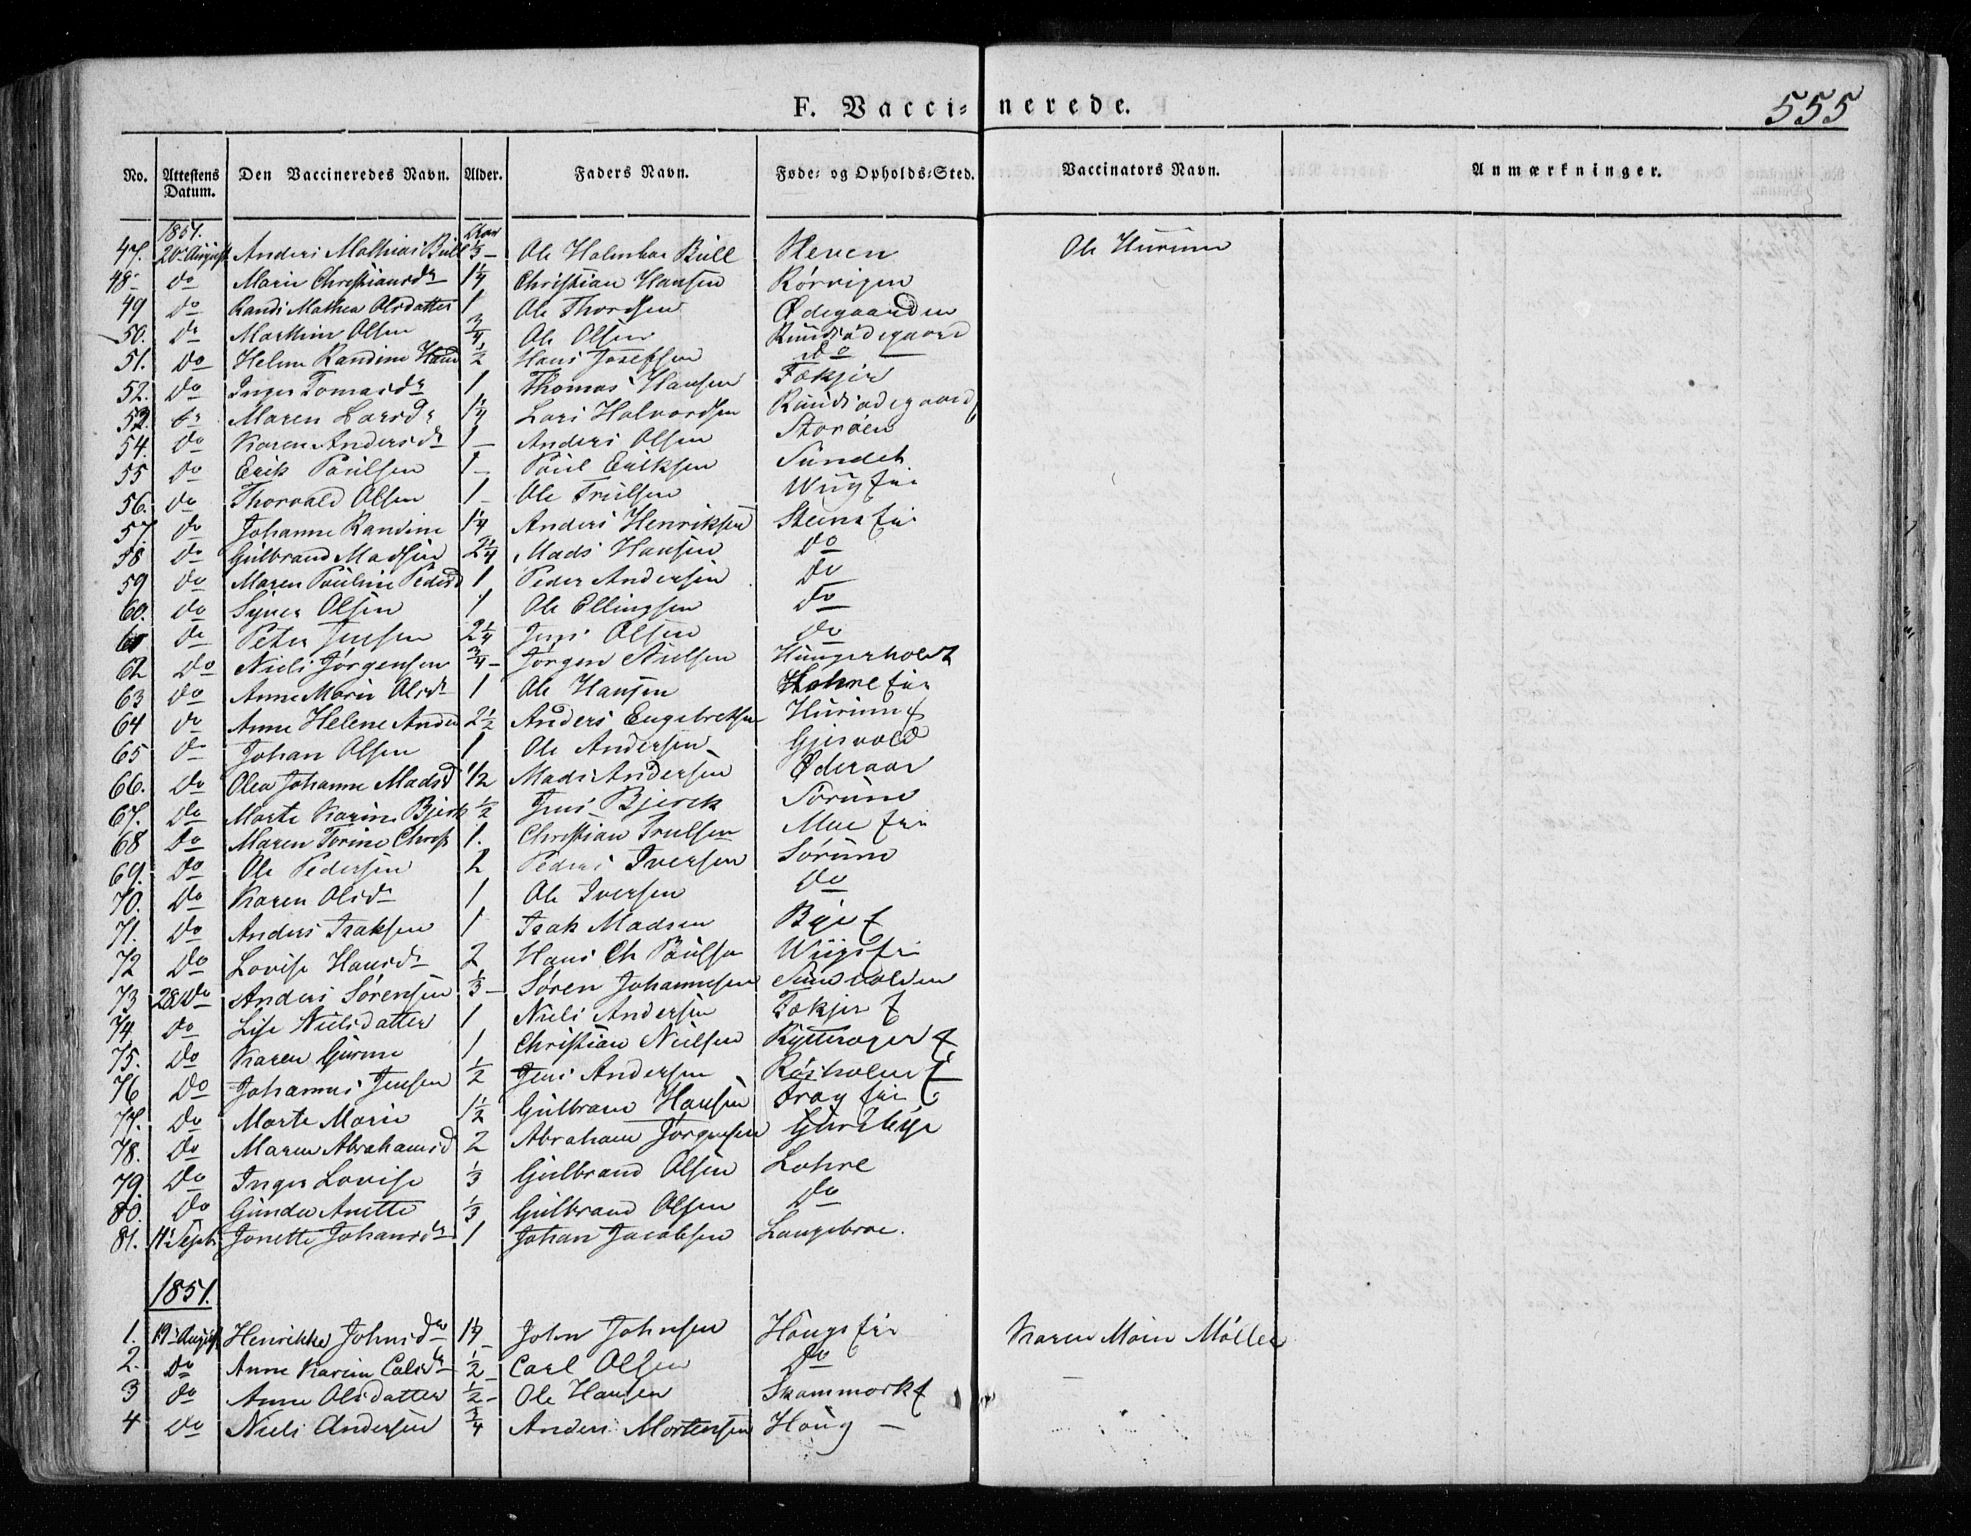 555
F. Vaccinerede.
No. Attestens Datum. Den Vaccineredes Navn. Alder. Faders Navn. Føde- og Opholds-Sted. Vaccinators Navn. Anmærkninger.
1851. Aar
47. 20 August Anders Mathias Bull 1/3 - Ole Halenbar Bull Steven Ole Hurum
48 - do Maria Christiansdr 1 1/4 Christian Hansen Rørvigen
49 do Randi Mathea Olsdatter 1 Ole Thordsen Ødegaarden
50. do Marthin Olsen 3/4 Ole Olsen Rundsødegaard
51. do Helene Randine Hans 1/2 Hans Josefsen do
52. do Inger Tomasdr 1 Thomas Hansen Fækjer
53. do Maren Larsdr 1 1/4 Lars Halvordsen Rundsødegaard
54. do Karen Andersdr 1 - Anders Olsen Storøen
55 do Erik Paulsen 1 - Paul Eriksen Sundet
56. do Thorvald Olsen 1 - Ole Trulsen Wiigseie
57. do Johanne Randine 1 1/4 Anders Henriksen Steinseie
58 do Gulbrand Madsen 2 1/4 Mads Hansen do
59 do Maren Pauline Pedersd 1 Peder Andersen do
60. do Syver Olsen 1 Ole Ellingsen do
61 do Peter Jensen 2 1/4 Jens Olsen do
62 do Niels Jørgensen 3/4 - Jørgen Nielsen Hungerholdt
63 do Anne Marie Olsdr 1 Ole Hansen Lohreeie
64 do Anne Helene Anders 2 1/2 Anders Engebretsen Hurum
65 do Johan Olsen 1 Ole Andersen Gjesvold
66. do Olea Johanne Madsd 1/2 Mads Andersen Øderaar
67. do Marte Karine Bjerk 1/2 Jens Bjerck Sørum
68 do Maren Torine Christ 1. Christian Trulsen Moe eie
69. do Ole Pedersen 2 Peder Iversen Sørum
70. do Karen Olsdr 1 Ole Iversen do
71. do Anders Isaksen 1 Isak Madsen Bye
72 do Lovise Hansdr 2 Hans Ch Paulsen Wiigseie
73 28 do Anders Sørensen 1/3 - Søren Johannesen Sundvolden
74. do Lise Nielsdatter 1 Niels Andersen Fækjer
75. do Karen Gurine 1 Christian Nielsen Rytterager
76 do Johannes Jensen 1/2 Jens Andersen Røsholm
77. do Marte Marie 1 1/2 Gulbrand Hansen Frøgeie
78. do Maren Abrahamsd 2 Abraham Jørgensen Gurebye
79. do Inger Lovise 1/3 Gulbrand Olsen Lohre
80. do Gunda Anette 1/3 Gulbrand Olsen do
81. 11 Septb Jonette Johansdr 1 Johan Jacobsen Langebroe.
1851.
1. 19 August Henrikke Johnsdr 1 1/4 - John Johnsen Hougseie Karen Marie Møller
2. do Anne Karine Calsdr 1/2 - Carl Olsen do
3 do Anne Olsdatter 1/2 - Ole Hansen Skammark
4 do Niels Andersen 3/4 Anders Mortensen Houg -